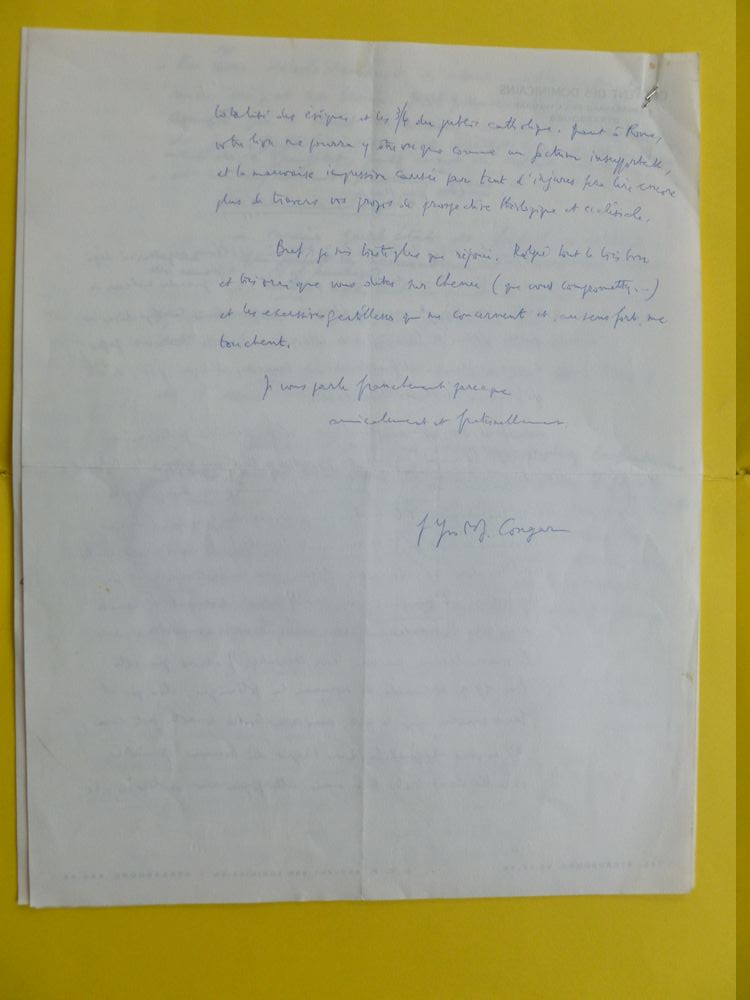 totalité des évêques et les 3/4 du public catholique. Quant à Rome,
votre livre ne pourra y être vu que comme un factum insupportable,
et la mauvaise impression causée par tant d'injures fera lire encore
plus de travers vos propos de prospective théologique et ecclésiale.
Bref, je suis triste plus que réjoui. Malgré tout le très bon
et très vrai que vous dites sur Chenu (que vous compromettez...)
et les excessives gentillesses qui me concernent et, au sens fort, me
touchent.
Je vous parle franchement parce que
amicalement et fraternellement
f Yves M.J. Congar